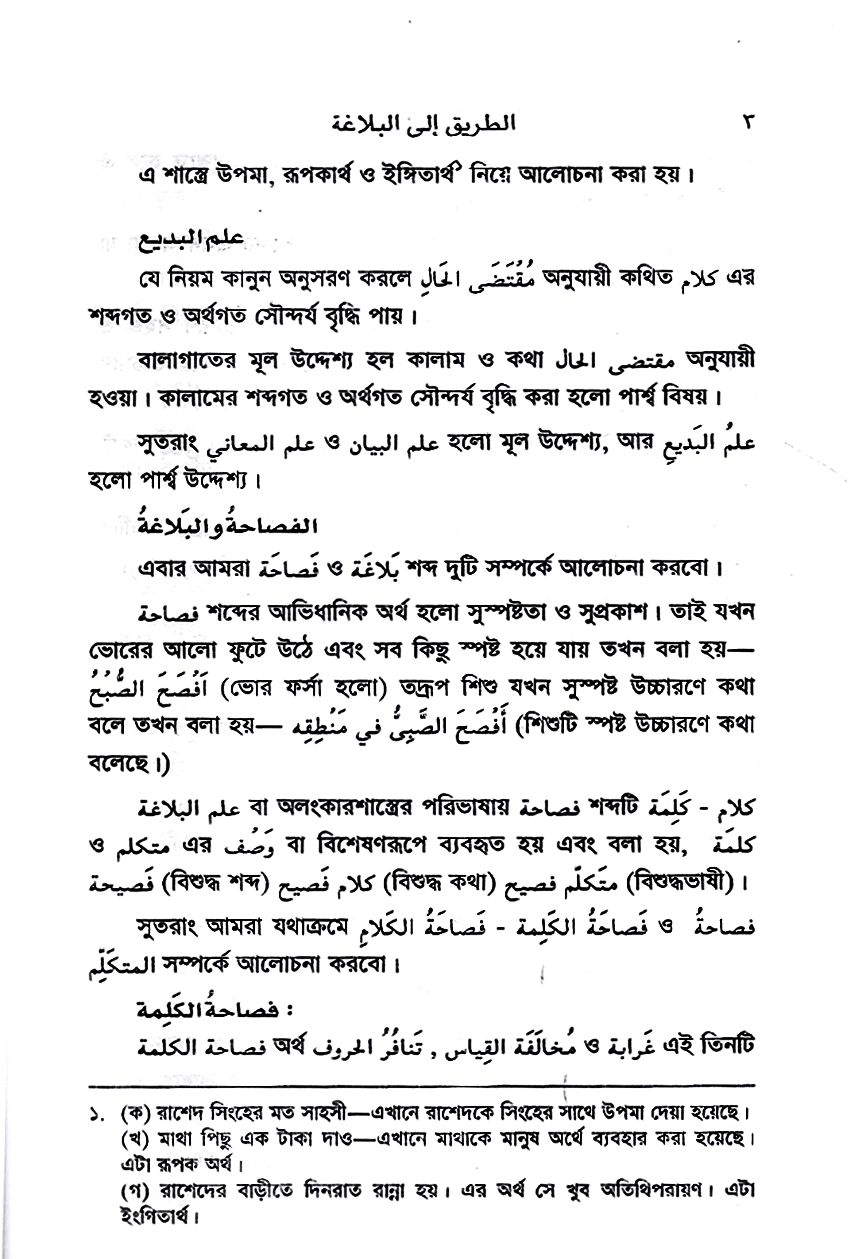 الطريق إلى البلاغة ٢
এ শাস্ত্রে উপমা, রূপকার্থ ও ইঙ্গিতার্থ১ নিয়ে আলোচনা করা হয়।
علم البديع
যে নিয়ম কানুন অনুসরণ করলে مُقْتَضَى الحَالِ অনুযায়ী কথিত كلام এর
শব্দগত ও অর্থগত সৌন্দর্য বৃদ্ধি পায়।
বালাগাতের মূল উদ্দেশ্য হল কালাম ও কথা مقتضى الحال অনুযায়ী
হওয়া। কালামের শব্দগত ও অর্থগত সৌন্দর্য বৃদ্ধি করা হলো পার্শ্ব বিষয়।
সুতরাং علم المعاني ও علم البيان হলো মূল উদ্দেশ্য, আর علمُ البَديعِ
হলো পার্শ্ব উদ্দেশ্য।
الفصاحةُ والبَلاغةُ
এবার আমরা فَصاحَة ও بَلاغَة শব্দ দুটি সম্পর্কে আলোচনা করবো।
فصاحة শব্দের আভিধানিক অর্থ হলো সুস্পষ্টতা ও সুপ্রকাশ। তাই যখন
ভোরের আলো ফুটে উঠে এবং সব কিছু স্পষ্ট হয়ে যায় তখন বলা হয়—
اَفْصَحَ الصُّبْحُ (ভোর ফর্সা হলো) তদ্রূপ শিশু যখন সুস্পষ্ট উচ্চারণে কথা
বলে তখন বলা হয়— أَفْصَحَ الصَّبِىُّ في مَنْطِقِه (শিশুটি স্পষ্ট উচ্চারণে কথা
বলেছে।)
علم البلاغة বা অলংকারশাস্ত্রের পরিভাষায় فصاحة শব্দটি كَلِمَة - كلام
ও متكلم এর وَصْف বা বিশেষণরূপে ব্যবহৃত হয় এবং বলা হয়, كلمَة
فَصيحة (বিশুদ্ধ শব্দ) كلام فَصيح (বিশুদ্ধ কথা) متَكلّم فصيح (বিশুদ্ধভাষী)।
সুতরাং আমরা যথাক্রমে فَصاحَةُ الكَلِمة - فَصاحَةُ الكَلامِ ও فصاحةُ
المتكَلِّم সম্পর্কে আলোচনা করবো।
فصاحةُ الكَلِمة :
فصاحة الكلمة অর্থ تَنافُرُ الحروف , مُخالَفَة القِياس ও غَرابة এই তিনটি
১. (ক) রাশেদ সিংহের মত সাহসী—এখানে রাশেদকে সিংহের সাথে উপমা দেয়া হয়েছে।
(খ) মাথা পিছু এক টাকা দাও—এখানে মাথাকে মানুষ অর্থে ব্যবহার করা হয়েছে।
এটা রূপক অর্থ।
(গ) রাশেদের বাড়ীতে দিনরাত রান্না হয়। এর অর্থ সে খুব অতিথিপরায়ণ। এটা
ইংগিতার্থ।